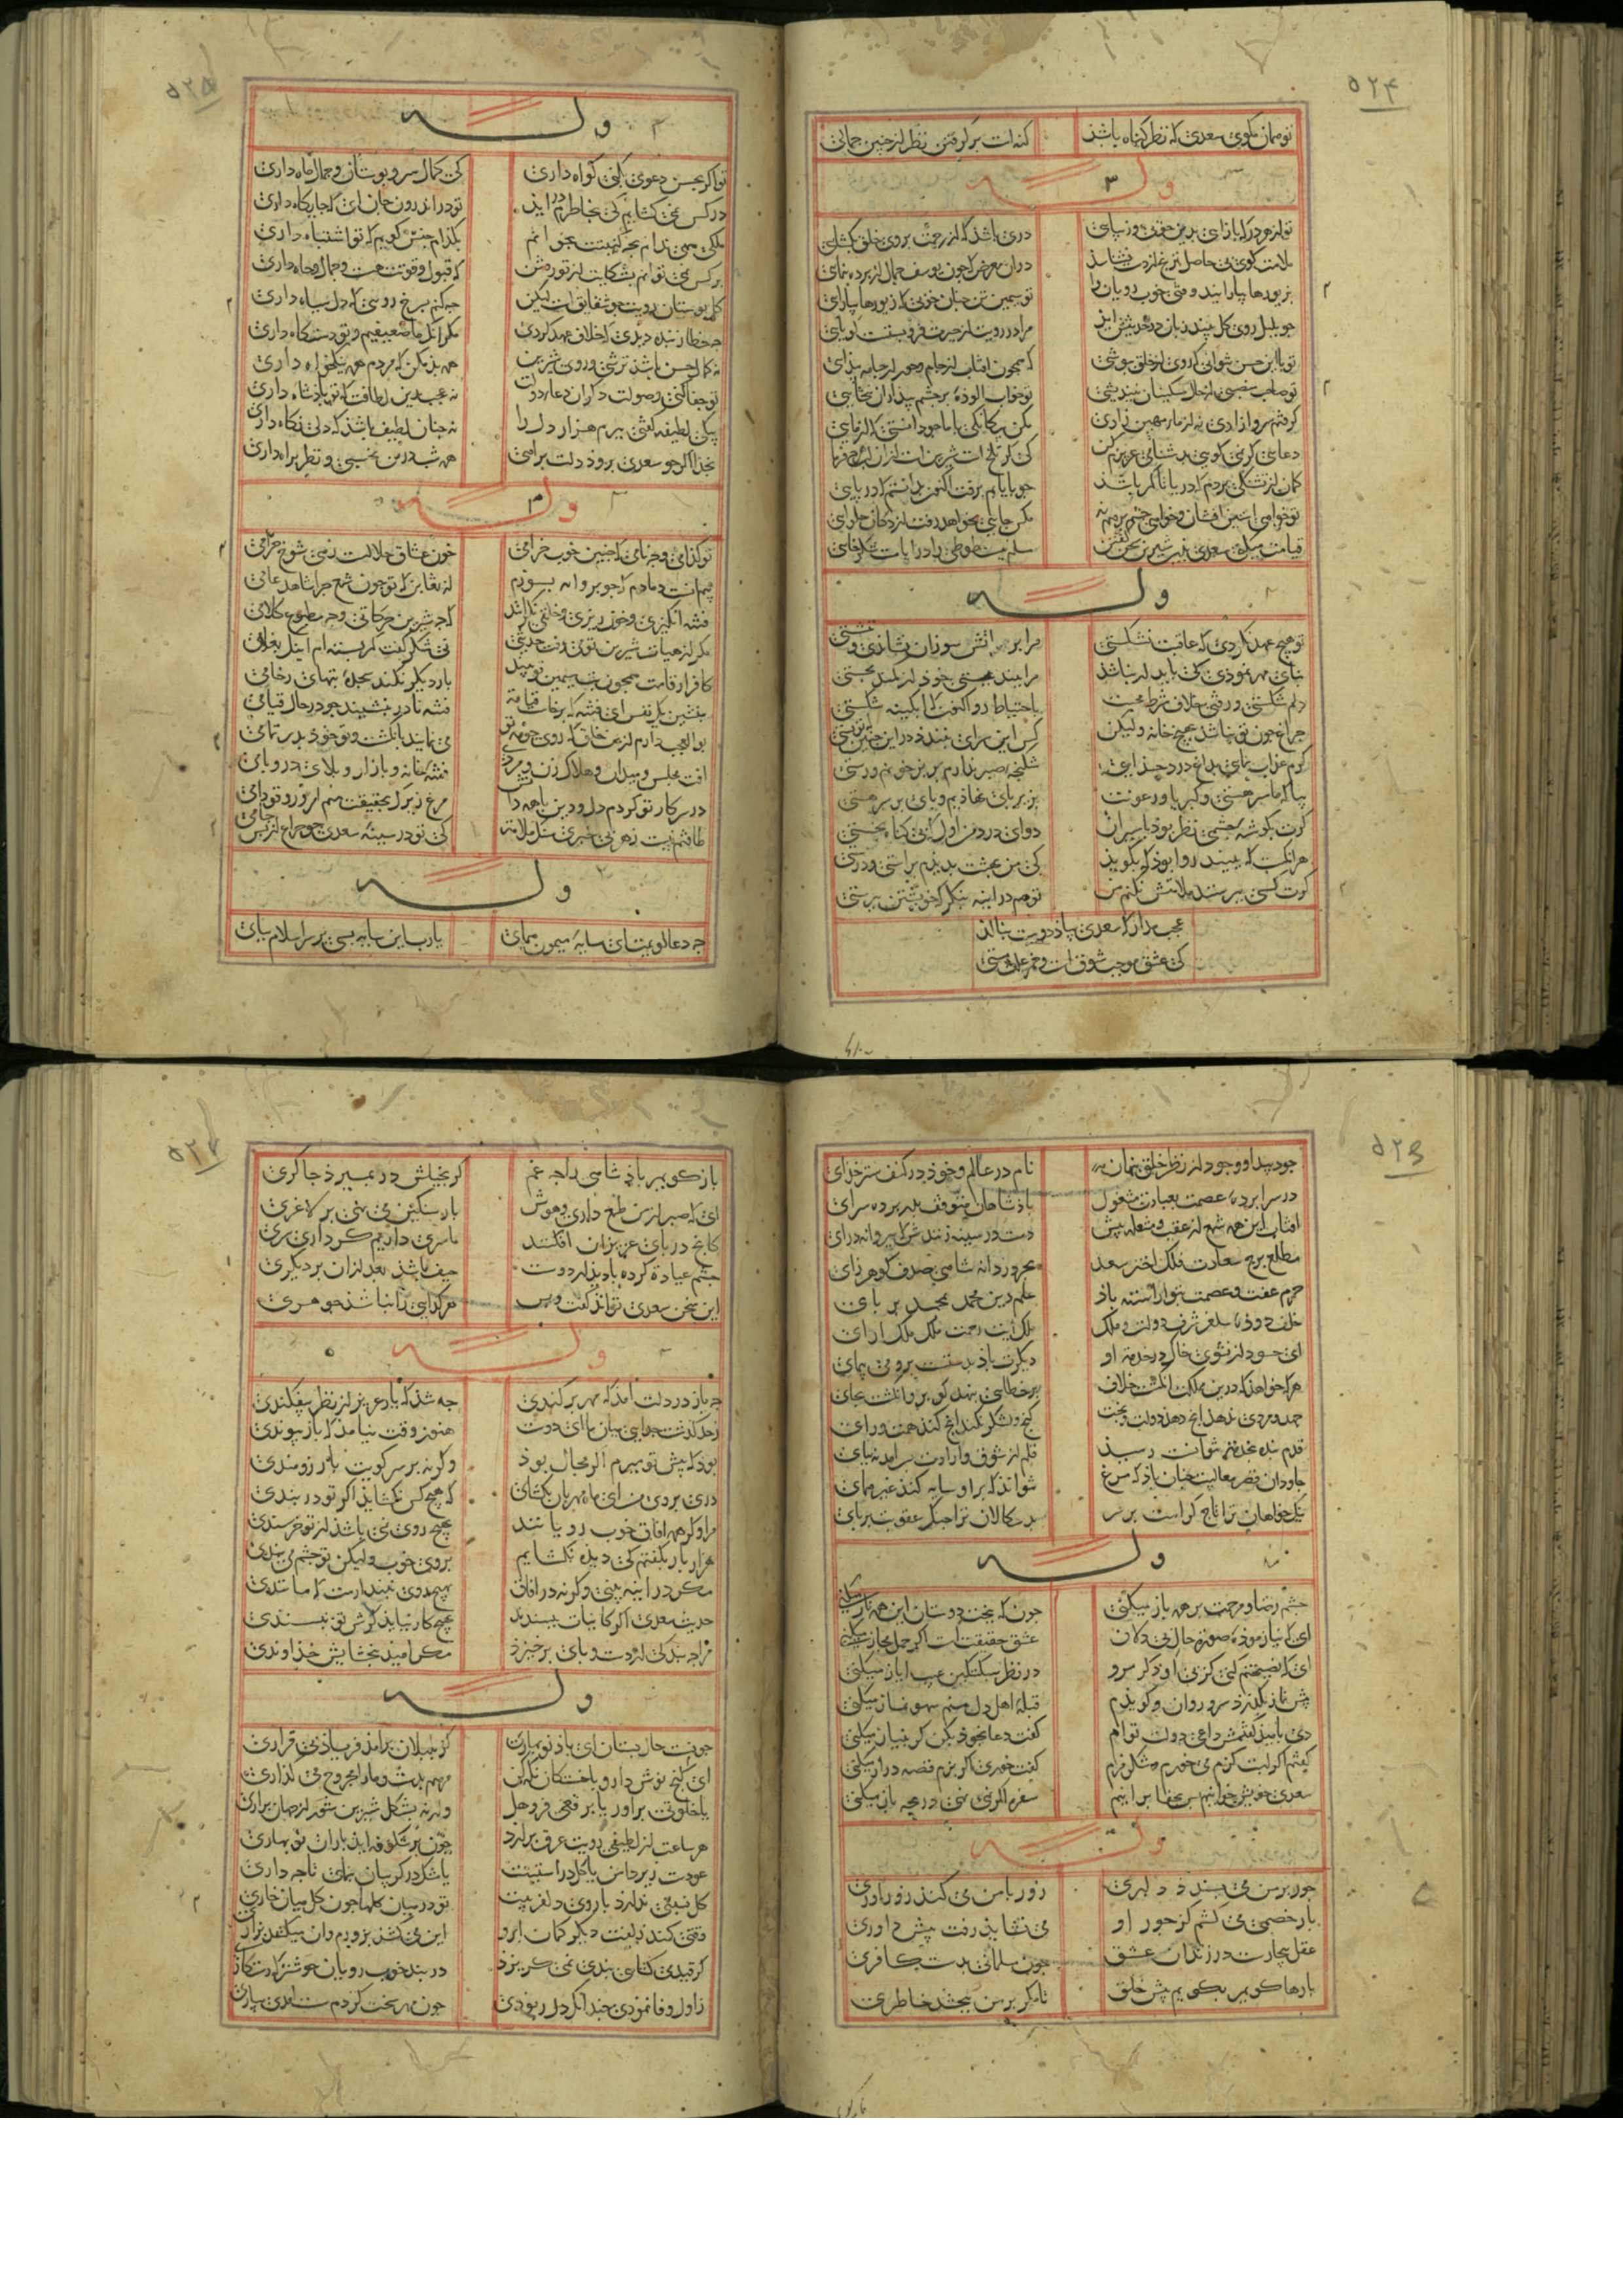 ۵۲۴
تو همان مکوی سعدی که نظر کناه باشذ کنه است بر کرفتن نظر از جنین جمالی
وله
تو از هر در که باز آیی بدین خوبی و زیبایی دری باشذ که از رحمت بروی خلق بکشایی
ملامت کوی بی حاصل ترنج از دست نشناسذ دران معرض که جون یوسف جمال از برده بنمایی
بزیورها بیارایند وقتی خوب رویان را تو سیمین تن جنان خوبی که زیورها بیارایی
جو بلبل روی کل بیند زبانش در حدیث ایذ مرا در رویت از حیرت فرو بستست کویایی
تو با این حسن نتوانی که روی از خلق در بوشی که همجون افتاب از جام و حور از جامه بیذایی
تو صاحب منصبی جانا ز حال مسکینان نیندیشی تو خواب الوده بر جشم بیذاران نبخشایی
کرفتم سرو ازاذی نه از ماء مهین زاذی مکن بیکانکی با ما جو دانستی که از مایی
دعایی کر نمی کویی بدشنامی عزیزم کن کی کر تلخست شیرینست از ان لب هرج فرمایی
کمان از تشنکی بردم که دریا تا کمر باشذ جو بایابم برفت اکنون بدانستم که دریایی
تو خواهی استین افشان و خواهی روی درهم کش مکس جایی نخواهد رفت از دکان حلوایی
قیامت میکنی سعدی بدین شیرین سخن کفتن مسلم نیست طوطی را در ایامت شکرخایی
وله
تو هیج عهد نکردی که عاقبت نشکستی مرا بر اتش سوزان نشاندی و ننشستی
بنای مهر نموذی کی بایدار نباشذ مرا ببند ببستی خوذ از کمند بجستی
دلم شکستی و رفتی خلاف شرط محبت باحتیاط رو اکنون که ابکینه شکستی
جراغ جون تو نباشذ بهیج خانه ولیکن کس این سرای نبندذ در این جنین که تو بستی
کرم عذاب نمایی بداغ و درد جذایی شکنجه صبر ندارم بریز خونم و رستی
بیا که ما سر هستی و کبریا و رعونت بزیر بای نهاذیم و بای بر سر هستی
کرت بکوشه جشمی نظر بوذ باسیران دوای درد من اول کی بی کناه بخستی
هر انکست که ببیند روا بوذ که بکویذ کی من بهشت بدیذم براستی و درستی
کرت کسی ببرستد ملامتش نکنم من تو هم در اینه بنکر که خویشتن ببرستی
عجب مدار که سعدی بیاذ دوست بنالذ
کی عشق موجب شوقست و خمر علت مستی
۵۲۵
وله
تو اکر بحسن دعوی بکنی کواه داری کی جمال سرو بوستان و جمال ماه داری
در کس نمی کشایم کی بخاطرم در ایذ تو در اندرون جان ای کی جایکاه داری
ملکی مهی ندانم بجه کنیتت بخوانم بکذام جنس کویم که تو اشتباه داری
بر کس نمی توانم بشکایت از تو رفتن که قبول و قوتت هست و جمال و جاه داری
کل بوستان رویت جو شقایقست لیکن جه کنم بسرخ رویی که دل سیاه داری
جه خطا ز بنده دیدی که خلاف عهد کردی مکر انک ما ضعیفیم و تو دستکاه داری
نه کمال حسن باشذ ترشی و روی شیرین همه بذ مکن که مردم همه نیکخواه داری
تو جفا کنی و صولت دکران دعای دولت نه عجب بدین لطافت که تو باذشاه داری
بیکی لطیفه کفتی ببرم هزار دل را نه جنان لطیف باشذ که دلی نکاه داری
بخذا اکر جو سعدی بروذ دلت براهی همه شب درین نخسبی و نظر براه داری
وله
تو کذامی و جه نامی که جنین خوب خرامی خون عشاق حلالست زهی شوخ حرامی
بیم انست دمادم که جو بروانه بسوزم از تغابن که تو جون شمع جرا شاهد عامی
فتنه انکیزی و خون ریزی و خلقی نکرانند که جه شیرین حرکاتی و جه مطبوع کلامی
مکر از هیات شیرین تو می رفت حدیثی نی شکر کفت کمر بسته ام اینک بغلامی
کافر ار قامت همجون بت سیمین تو بیند بار دیکر نکند سجده بتهای رخامی
بنشین یک نفس ای فتنه که برخاست قیامت فتنه نادر بنشیند جو در حال قیامی
بو العجب دارم از عشق خلق که روی جو مه تو می نمایند بانکشت و تو خوذ بدر تمامی
افت مجلس و میدان و هلاک زن و مردی فتنه خانه و بازار و بلای در و بامی
در سر کار تو کردم دل و دین با همه دانش مرغ زیرک بحقیقت منم امروز و تو دامی
طاقتم نیست ز هر بی خبری سنک ملامت کی تو در سینه سعدی جو جراغ از بس جامی
وله
جه دعا کویمت ای سایه میمون همای یارب این سایه بسی بر سر اسلام ببای
۵۲۶
جود بیدا و وجود از نظر خلق نهان نام در عالم و خوذ در کنف ستر خذای
در سرابرده عصمت بعبادت مشغول باذشاهان متوقف بدر برده سرای
افتاب این همه شمع از عقب و مشعله بیش دست در سینه زنندش که ببروانه درای
مطلع برج سعادت فلک اختر سعد بحر دردانه شاهی صدف کوهر زای
حرم عفت و عصمت بتو اراسته باذ علم دین محمد بمحمد بر بای
خلف دوذه سلغر شرف دولت و ملک ملک ایت رحمت ملک ملک ارای
ای حسود ار نشوی خاک در خدمت او دیکرت باذ بدستست برو می بیمای
هر که خواهذ که درین مملکت انکشت خلاف بر خطایی بنهد کو برو انکشت بخای
جهد و مردی ندهذ انج دهذ دولت و بخت کنج و لشکر نکند انج کند همت و رای
قدم بنده بخدمت نتوانست رسیذ قلم از شوق و ارادت بسر امد نه ببای
جاودان قصر معالیت جنان باذ که مرغ نتواند که برو سایه کند غیر همای
نیکخواهان ترا تاج کرامت بر سر بد سکالان ترا جنک عقوبت بر بای
وله
جشم رضا و مرحمت بر همه باز میکنی جون که ببخت دوستان این همه ناز میکنی
ای که نیازموذه صورت حال بی دلان عشق حقیقتست اکر حمل مجاز میکنی
ای که نصیحتم کنی کز بی او دکر مرو در نظر سبکتکین عیب ایاز میکنی
بیش نماز بکذرذ سرو روان و کویذم قبله اهل دل منم سهو نماز میکنی
دی بامید کفتمش داعی دولت توام کفت دعا بخوذ بکن کر بنیاز میکنی
کفتم اکر لبت کزم می خورم و شکر مزم کفت خوری اکر بزم قصه دراز میکنی
سعدی خویش خوانیم بس بجفا برانیم سفره اکر نمی نهی در بجه باز میکنی
وله
جور بر من می بسندذ دلبری زور با من می کند زوراوری
بار خصمی می کشم کز جور او می نشایذ رفت بیش داوری
عقل بیچارست در زندان عشق جون مسلمانی بدست کافری
بارها کویم بکویم بیش خلق تا مکر بر من ببخشد خاطری
باز کویم باذشاهی را جه غم کر بخیلش در بمیرذ جاکری
ای که صبر از من طمع داری و هوش بار سنکین می نهی بر لاغری
کانج در بای عزیزان افکنند ما سری داریم کر داری سری
جشم عیادت کرده بادیذار دوست حیف باشذ بعد ازان بر دیکری
این سخن سعدی تواند کفت و بس هر کدایی را نباشذ جوهری
وله
جه باز در دلت امذ که مهر برکندی جه شذ که یار عزیز از نظر بیفکندی
ز حد کذشت جدایی میان ما ای دوست هنوز وقت نیامد که باز بیوندی
بوذ که بیش تو میرم اکر مجال بوذ و کر نه بر سر کویت بارزومندی
دری بروی من ای ماه مهربان بکشای که هیچ کس نکشایذ اکر تو دربندی
مرا و کر همه افاق خوب رویانند بهیچ روی نمی باشذ از تو خرسندی
هزار بار بکفتم کی دیذه نکشایم بروی خوب و لیکن تو جشم می بندی
مکر در اینه بینی و کرنه در افاق بهیچ روی نبندارمت که مانندی
حدیث سعدی اکر کاینات ببسندند بهیچ کار نیایذ کرش تو نبسندی
مرا جه بندکی از دست و بای برخیزذ مکر امید ببخشایش خذاوندی
وله
جونست حال بستان ای باذ نوبهاری کز بلبلان برامذ فریاذ بی قراری
ای کنج نوش دارو با خستکان نکه کن مرهم بدست و ما را مجروح می کذاری
یا خلوتی براور یا برقعی فرو هل ورنه بشکل شیرین شور از جهان براری
هر ساعت از لطیفی رویت عرق برارذ جون بر شکوفه ایذ باران نوبهاری
عودست زیر دامن یا کل در استینت یا مشک در کریبان بنمای تا جه داری
کل نسبتی ندارذ با روی دلفریبت تو در میان کلها جون کل میان خاری
وقتی کمند زلفت دیکر کمان ابرو این می کشذ بزورم وان میکشد بزاری
کر قیدی می کشایی بندی نمی کریزذ در بند خوب رویان خوشتر که رستکاری
ز اول وفا نموذی جندانک دل ربوذی جون مهر سخت کردم سست امذی بیاری